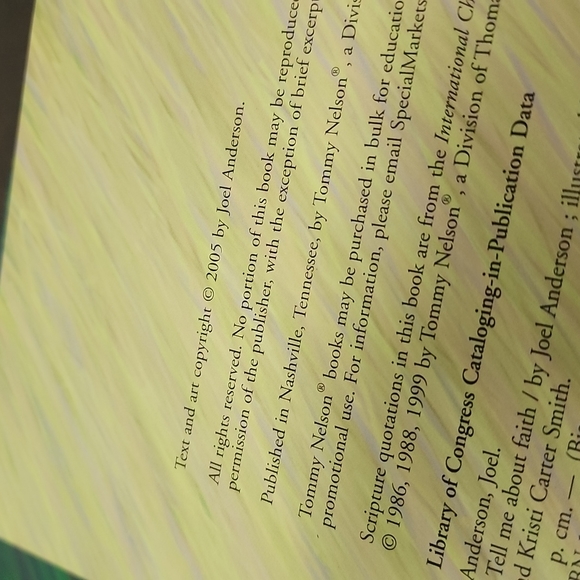 Text and art copyright © 2005 by Joel Anderson.
All rights reserved. No portion of this book may be reproduced
permission of the publisher, with the exception of brief excerp
Published in Nashville, Tennessee, by Tommy Nelson®, a Divis
Tommy Nelson® books may be purchased in bulk for educatio
promotional use. For information, please email SpecialMarkets
Scripture quotations in this book are from the International Ch
© 1986, 1988, 1999 by Tommy Nelson®, a Division of Thoma
Library of Congress Cataloging-in-Publication Data
Anderson, Joel.
Tell me about faith / by Joel Anderson ; illustr
d Kristi Carter Smith.
p. cm. — (Big